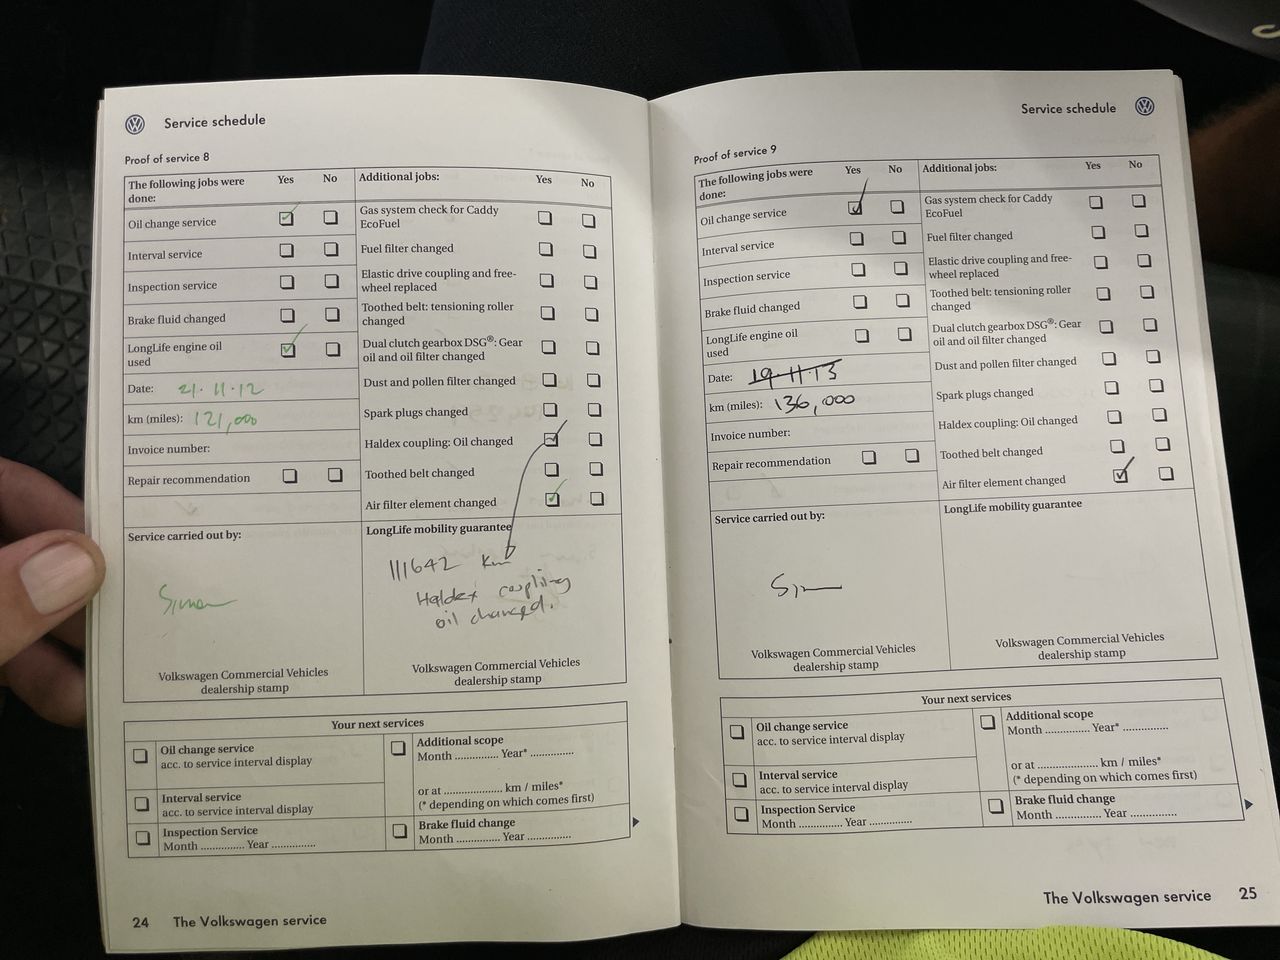 Service schedule
Proof of service 8
The following jobs were done: Yes No Additional jobs: Yes No
Oil change service
Gas system check for Caddy EcoFuel
Interval service
Fuel filter changed
Inspection service
Elastic drive coupling and free-
wheel replaced
Brake fluid changed
Toothed belt: tensioning roller
changed
LongLife engine oil
used
Dual clutch gearbox DSG®: Gear
oil and oil filter changed
Date: 21·11·12
Dust and pollen filter changed
km (miles): 121,000
Spark plugs changed
Invoice number:
Haldex coupling: Oil changed
Repair recommendation
Toothed belt changed
Air filter element changed
Service carried out by:
LongLife mobility guarantee
111642 km
Haldex coupling
oil changed.
Simon
Volkswagen Commercial Vehicles
dealership stamp
Volkswagen Commercial Vehicles
dealership stamp
Your next services
Oil change service
acc. to service interval display
Interval service
acc. to service interval display
Inspection Service
Month ............... Year ...............
Additional scope
Month ............... Year* ...............
or at .................... km / miles*
(* depending on which comes first)
Brake fluid change
Month ............... Year ...............
24 The Volkswagen service
Service schedule
Proof of service 9
The following jobs were done: Yes No Additional jobs: Yes No
Oil change service
Gas system check for Caddy
EcoFuel
Interval service
Fuel filter changed
Inspection service
Elastic drive coupling and free-
wheel replaced
Brake fluid changed
Toothed belt: tensioning roller
changed
LongLife engine oil
used
Dual clutch gearbox DSG®: Gear
oil and oil filter changed
Date: 19·11·13
Dust and pollen filter changed
km (miles): 136,000
Spark plugs changed
Invoice number:
Haldex coupling: Oil changed
Repair recommendation
Toothed belt changed
Air filter element changed
Service carried out by:
LongLife mobility guarantee
Volkswagen Commercial Vehicles
dealership stamp
Volkswagen Commercial Vehicles
dealership stamp
Your next services
Oil change service
acc. to service interval display
Interval service
acc. to service interval display
Inspection Service
Month ............... Year ...............
Additional scope
Month ............... Year* ...............
or at .................... km / miles*
(* depending on which comes first)
Brake fluid change
Month ............... Year ...............
The Volkswagen service 25